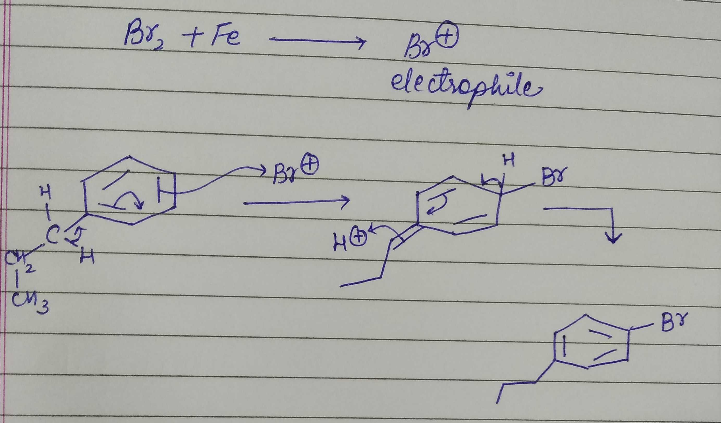 Br₂ + Fe ⟶ Br⊕
electrophile
H
C
H
CH₂
CH₃
Br⊕
H
Br
H⊕
Br